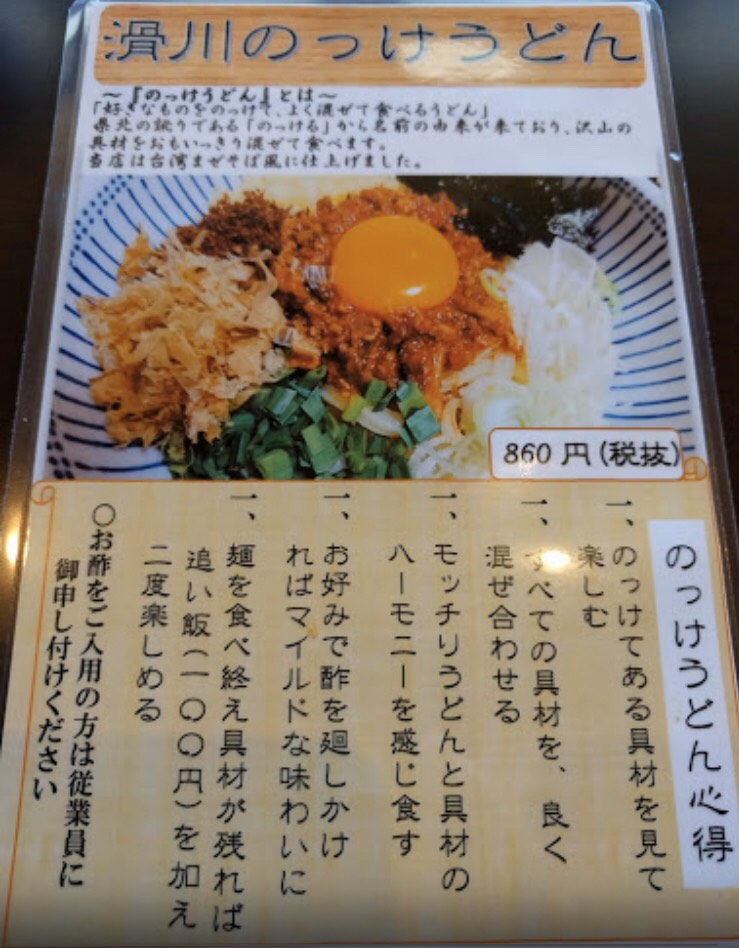 滑川のっけうどん
〜『のっけうどん』とは〜
「好きなものをのっけて、よく混ぜて食べるうどん」
県北の訛りである「のっける」から名前の由来が来ており、沢山の
具材をおもいっきり混ぜて食べます。
当店は台湾まぜそば風に仕上げました。
860円(税抜)
のっけうどん心得
一、のっけてある具材を見て
楽しむ
一、すべての具材を、良く
混ぜ合わせる
一、モッチりうどんと具材の
ハーモニーを感じ食す
一、お好みで酢を廻しかけ
ればマイルドな味わいに
一、麺を食べ終え具材が残れば
追い飯(一〇〇円)を加え
二度楽しめる
〇お酢をご入用の方は従業員に
御申し付けください